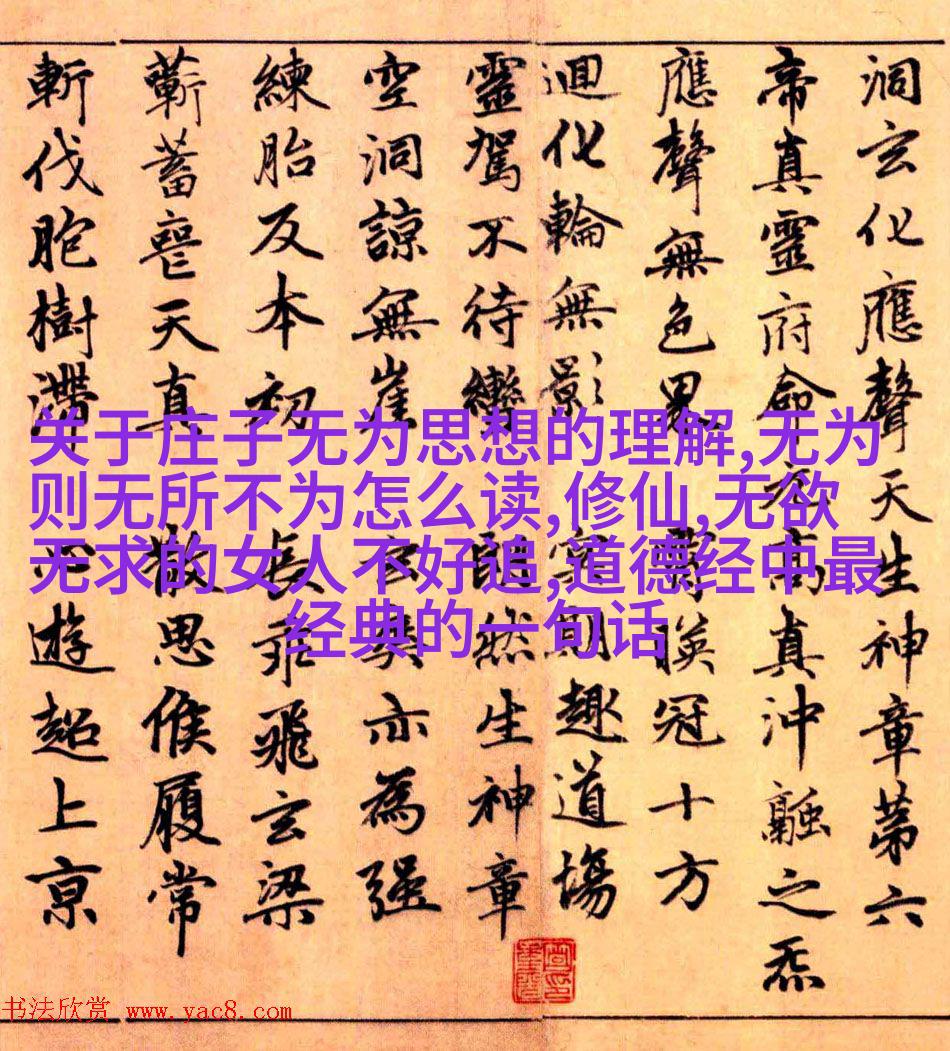 洞玄化應聲天生神章苐六
帝真靈府命高真沖融之炁
應聲無色界 霄暎冠十方
迴化輪無影 冥期趣道場
靈駕不待轡 朗然生神章
空洞諒無崖 玄爽亦為强
練胎反本初 長乖飛玄梁
蘄蓄喪天真 散思候履常
斬伐胞樹滯 遊超上京
关于庄子无为思想的理解,无为
则无所不为怎么读,修仙,无欲
无求的女人不好追,道德经中最
经典的一句话
书法欣赏 www.yac8.com